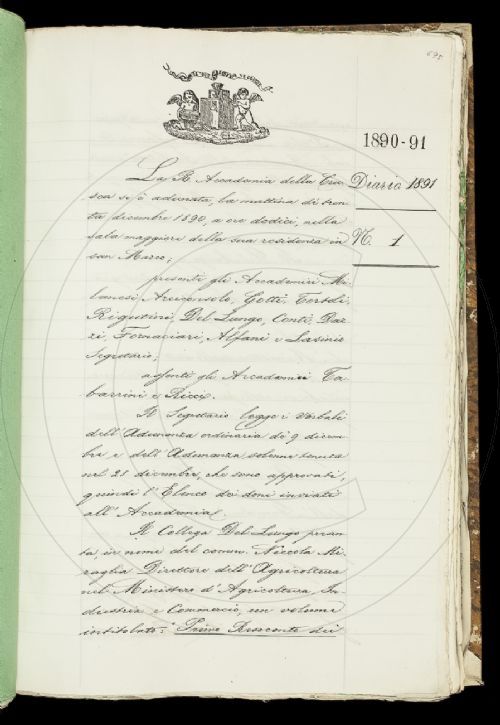 695
1890-91
La R. Accademia della Cru-
sca si è adunata, la mattina di tren-
ta dicembre 1890, a ore dodici, nella
sala maggiore della sua residenza in
San Marco;
Diario 1891
N. 1
presenti gli Accademici Mi-
lanesi, Arciconsolo, Gotti, Tortoli,
Rigutini, Del Lungo, Conti, Daz-
zi, Fornaciari, Alfani e Lasinio
Segretario;
assenti gli Accademici Ta-
barrini e Ricci.
Il Segretario legge i Verbali
dell'Adunanza ordinaria di 9 dicem-
bre e dell'Adunanza solenne tenuta
nel 28 dicembre, che sono approvati;
quindi l'Elenco dei doni inviati
all'Accademia.
Il Collega Del Lungo presen-
ta, in nome del comm. Niccola Mi-
raglia Direttore dell'Agricoltura
nel Ministero d'Agricoltura, In-
dustria e Commercio, un volume
intitolato: "Primo Resoconto dei